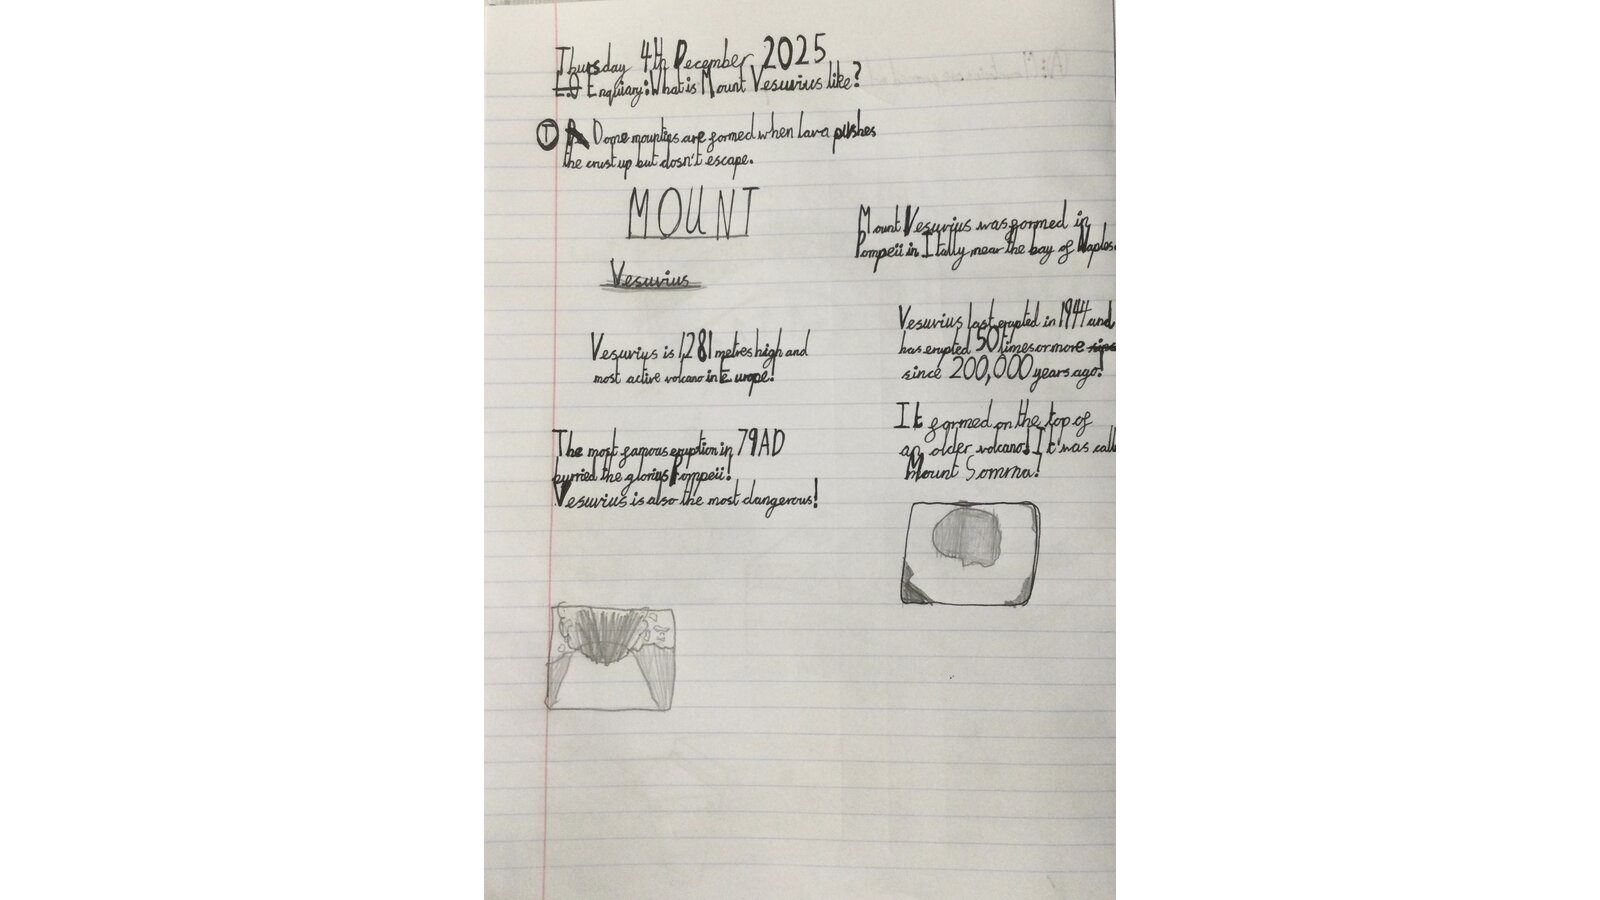 Thursday 4th December 2025
L.O Enquiary: What is Mount Vesuvius like?
T Dome mounties are formed when lava pushes
the crust up but dosn't escape.
MOUNT
Vesuvius
Vesuvius is 1,281 metres high and
most active volcano in Europe!
The most famous eruption in 79AD
burried the glorius Pompeii!
Vesuvius is also the most dangerous!
Mount Vesuvius was formed in
Pompeii in Itally near the bay of Naples.
Vesuvius last erupted in 1944 and
has erupted 50 times or more
since 200,000 years ago!
It formed on the top of
an older volcano! It was call
Mount Somma!